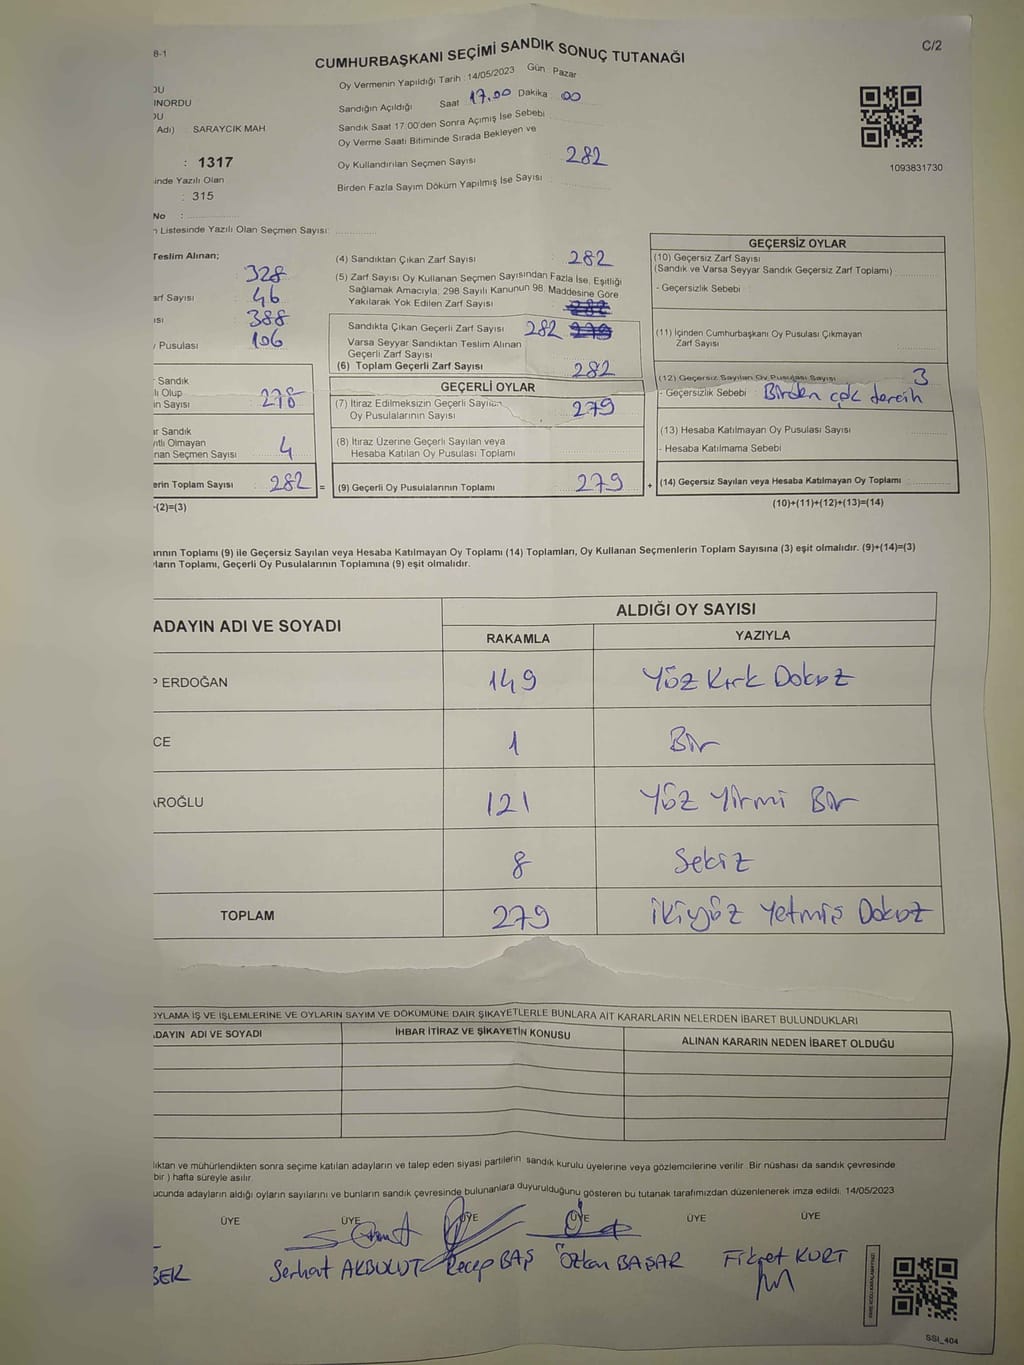 8-1
C/2
CUMHURBAŞKANI SEÇİMİ SANDIK SONUÇ TUTANAĞI
DU
INORDU
DU
Adı) SARAYCIK MAH
: 1317
inde Yazılı Olan
: 315
No :
n Listesinde Yazılı Olan Seçmen Sayısı:
Oy Vermenin Yapıldığı Tarih : 14/05/2023 Gün Pazar
Sandığın Açıldığı Saat 17.00 Dakika 00
Sandık Saat 17:00'den Sonra Açımış İse Sebebi
Oy Verme Saati Bitiminde Sırada Bekleyen ve
Oy Kullandırılan Seçmen Sayısı 282
Birden Fazla Sayım Döküm Yapılmış İse Sayısı
1093831730
Teslim Alınan;
328
arf Sayısı 46
ısı 388
y Pusulası 106
r Sandık
lı Olup
in Sayısı 278
ar Sandık
ıtlı Olmayan
nan Seçmen Sayısı 4
erin Toplam Sayısı 282 =
-(2)=(3)
(4) Sandıktan Çıkan Zarf Sayısı 282
(5) Zarf Sayısı Oy Kullanan Seçmen Sayısından Fazla İse, Eşitliği
Sağlamak Amacıyla, 298 Sayılı Kanunun 98. Maddesine Göre
Yakılarak Yok Edilen Zarf Sayısı
Sandıkta Çıkan Geçerli Zarf Sayısı 282 279
Varsa Seyyar Sandıktan Teslim Alınan
Geçerli Zarf Sayısı
(6) Toplam Geçerli Zarf Sayısı 282
GEÇERLİ OYLAR
(7) İtiraz Edilmeksizin Geçerli Sayılan
Oy Pusulalarının Sayısı 279
(8) İtiraz Üzerine Geçerli Sayılan veya
Hesaba Katılan Oy Pusulası Toplamı
(9) Geçerli Oy Pusulalarının Toplamı 279 +
GEÇERSİZ OYLAR
(10) Geçersiz Zarf Sayısı
(Sandık ve Varsa Seyyar Sandık Geçersiz Zarf Toplamı)
- Geçersizlik Sebebi
(11) İçinden Cumhurbaşkanı Oy Pusulası Çıkmayan
Zarf Sayısı
(12) Geçersiz Sayılan Oy Pusulası Sayısı 3
- Geçersizlik Sebebi Birden çok tercih
(13) Hesaba Katılmayan Oy Pusulası Sayısı
- Hesaba Katılmama Sebebi
(14) Geçersiz Sayılan veya Hesaba Katılmayan Oy Toplamı
(10)+(11)+(12)+(13)=(14)
arının Toplamı (9) ile Geçersiz Sayılan veya Hesaba Katılmayan Oy Toplamı (14) Toplamları, Oy Kullanan Seçmenlerin Toplam Sayısına (3) eşit olmalıdır. (9)+(14)=(3)
ların Toplamı, Geçerli Oy Pusulalarının Toplamına (9) eşit olmalıdır.
ADAYIN ADI VE SOYADI
ALDIĞI OY SAYISI
RAKAMLA YAZIYLA
P ERDOĞAN 149 Yüz Kırk Dokuz
CE 1 Bir
AROĞLU 121 Yüz Yirmi Bir
8 Sekiz
TOPLAM 279 İkiyüz Yetmiş Dokuz
OYLAMA İŞ VE İŞLEMLERİNE VE OYLARIN SAYIM VE DÖKÜMÜNE DAİR ŞİKAYETLERLE BUNLARA AİT KARARLARIN NELERDEN İBARET BULUNDUKLARI
ADAYIN ADI VE SOYADI İHBAR İTİRAZ VE ŞİKAYETİN KONUSU ALINAN KARARIN NEDEN İBARET OLDUĞU
lıktan ve mühürlendikten sonra seçime katılan adayların ve talep eden siyasi partilerin sandık kurulu üyelerine veya gözlemcilerine verilir. Bir nüshası da sandık çevresinde
bir ) hafta süreyle asılır.
ucunda adayların aldığı oyların sayılarını ve bunların sandık çevresinde bulunanlara duyurulduğunu gösteren bu tutanak tarafımızdan düzenlenerek imza edildi. 14/05/2023
ÜYE ÜYE ÜYE ÜYE ÜYE ÜYE
BER Serhat AKBULUT Recep BAŞ Özkan BAŞAR Fikret KURT
SSI_404